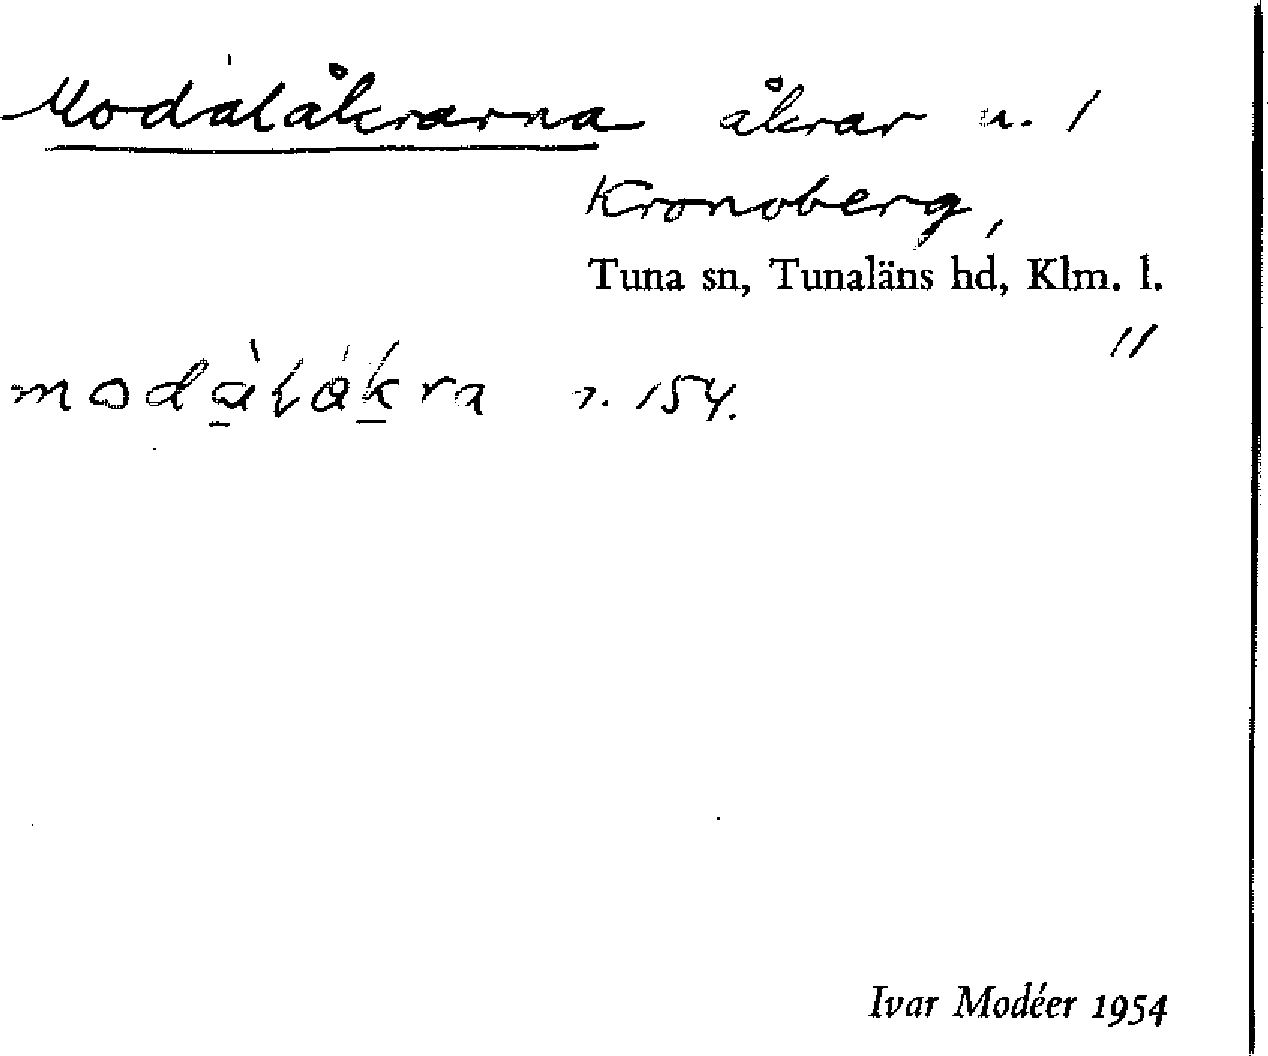 Modalåkrarna åkrar u. /
Kronoberg,
Tuna sn, Tunaläns hd, Klm. l.
//
r. 154.
Ivar Modéer 1954